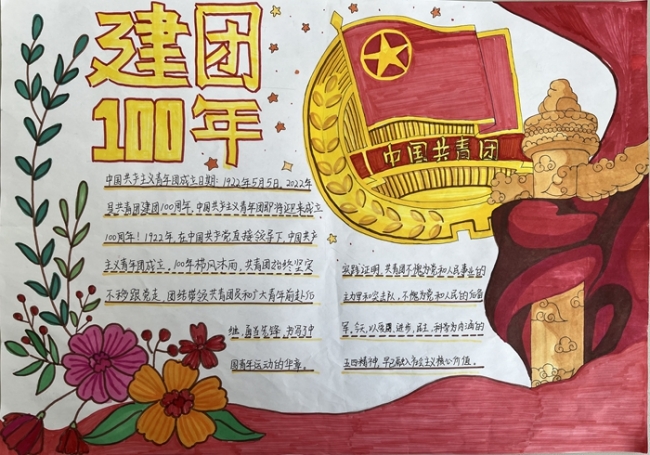 建团
100年
中国共青团
中国共产主义青年团成立日期:1922年5月5日,2022年
是共青团建团100周年,中国共产主义青年团即将迎来成立
100周年!1922年,在中国共产党直接领导下,中国共产
主义青年团成立,100年栉风沐雨,共青团始终坚定
不移跟党走,团结带领共青团员和广大青年前赴后
继,勇当先锋,书写了中
国青年运动的华章。
实践证明,共青团不愧为党和人民事业的
主力军和突击队,不愧为党和人民的后备
军。今天,以爱国、进步、民主、科学为内涵的
五四精神,早已融入社会主义核心价值。